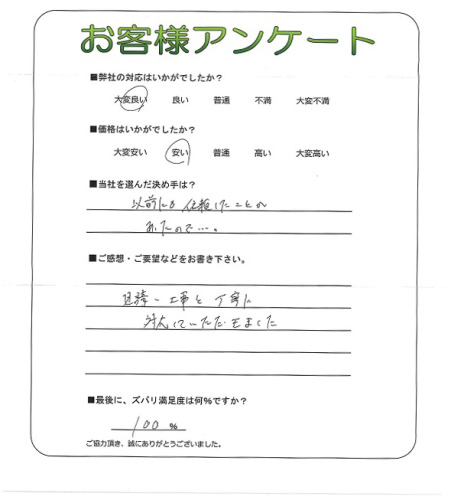 お客様アンケート
■弊社の対応はいかがでしたか?
大変良い 良い 普通 不満 大変不満
■価格はいかがでしたか?
大変安い 安い 普通 高い 大変高い
■当社を選んだ決め手は?
以前にも依頼したことが
あったので…。
■ご感想・ご要望などをお書き下さい。
工事と丁寧に
対応していただきました
■最後に、ズバリ満足度は何%ですか?
100 %
ご協力頂き、誠にありがとうございました。